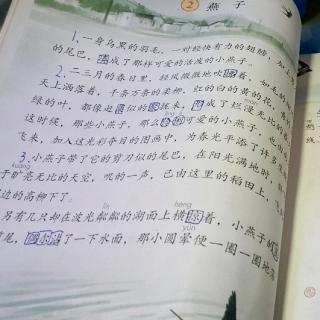 2 燕子
1.一身乌黑的羽毛，一对轻快有力的翅膀，加上
的尾巴，成了那样可爱的活泼的小燕子。
2.二三月的春日里，轻风微微地吹着，如毛的
天上洒落着，千条万条的柔柳，红的白的黄的花，
绿的叶，都像赶似的来，成了烂漫无比的春
màn
这时候，那些小燕子，那么可爱的小燕子，也由
飞来，加入这光彩的图画中，为春光平添了许多
3.小燕子带了它的剪刀似的尾巴，在阳光满地时，
kuàng
于旷亮无比的天空，叽的一声，已由这里的稻田上，飞
边的高柳下了。
lín héng
另有几只却在波光粼粼的湖面上横着，小燕子的
yùn
尾，了一下水面，那小圆晕便一圈一圈地荡